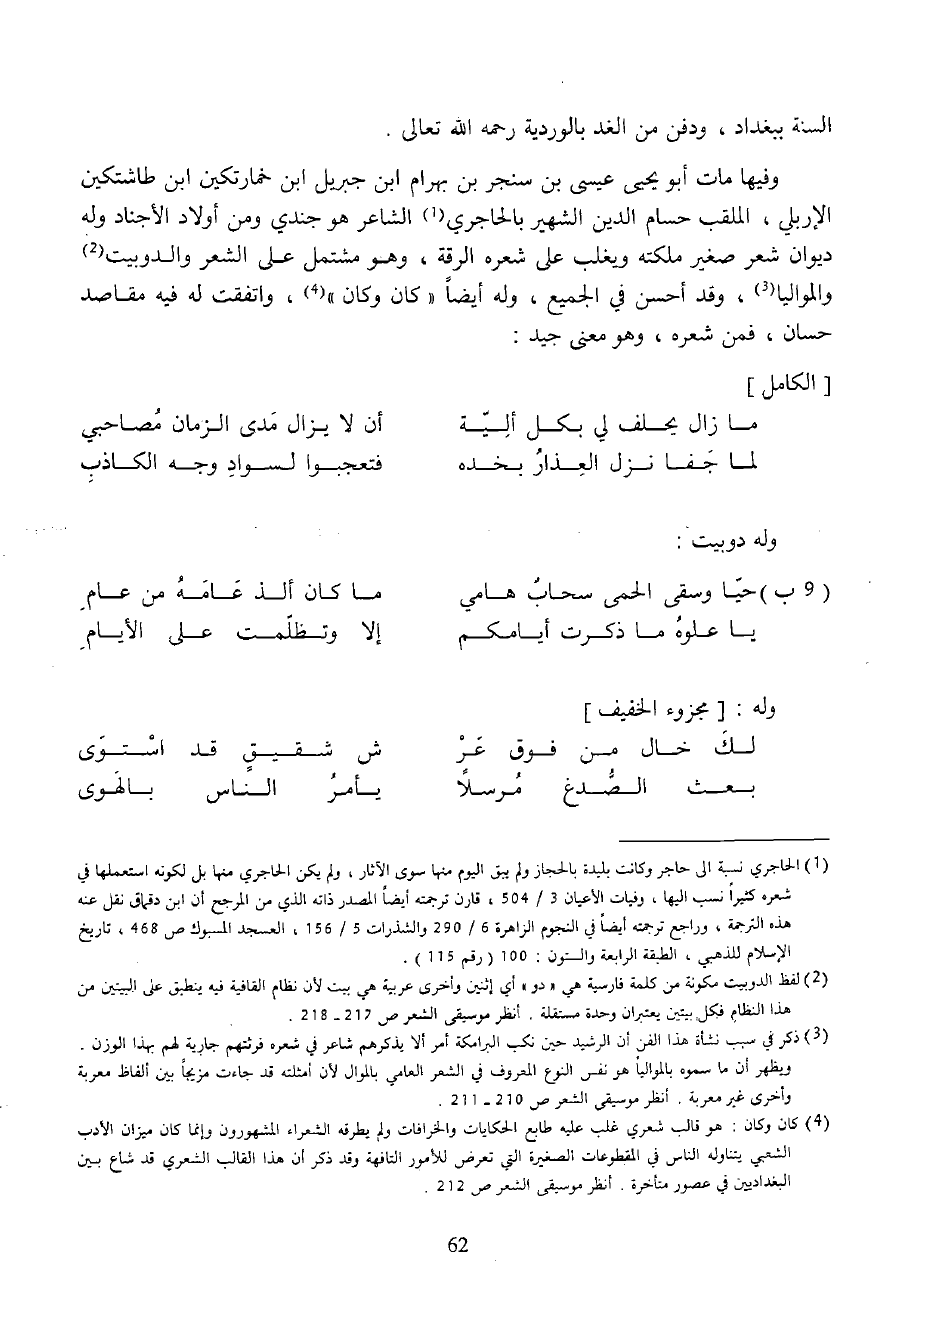 السنة ببغداد ، ودفن من الغد بالوردية رحمه الله تعالى .
وفيها مات أبو يحيى عيسى بن سنجر بن بهرام ابن جبريل ابن خمارتكين ابن طاشتكين
الإربلي ، الملقب حسام الدين الشهير بالحاجري(1) الشاعر هو جندي ومن أولاد الأجناد وله
ديوان شعر صغير ملكته ويغلب على شعره الرقة ، وهو مشتمل على الشعر والدوبيت(2)
والمواليا(3) ، وقد أحسن في الجميع ، وله أيضاً « كان وكان »(4) ، واتفقت له فيه مقاصد
حسان ، فمن شعره ، وهو معنى جيد :
[ الكامل ]
ما زال يحلف لي بكل أليّة أن لا يزال مَدى الزمان مُصاحبي
لما جَفا نزل العذارُ بخده فتعجبوا لسواد وجه الكاذبِ
وله دوبيت :
( 9 ب ) حيّا وسقى الحمى سحابٌ هامي ما كان ألذ عَامَهُ من عامِ
يا علوةُ ما ذكرت أيامكم إلا وتظلّمت على الأيامِ
وله : [ مجزوء الخفيف ]
لكَ خال من فوق عَرْ ش شقيقٍ قد اسْتوَى
بعث الصُّدغ مُرسلاً يأمرُ الناس بالهَوى
(1) الحاجري نسبة الى حاجر وكانت بليدة بالحجاز ولم يبق اليوم منها سوى الآثار ، ولم يكن الحاجري منها بل لكونه استعملها في
شعره كثيراً نسب اليها ، وفيات الأعيان 3 / 504 ، قارن ترجمته أيضاً المصدر ذاته الذي من المرجح أن ابن دقماق نقل عنه
هذه الترجمة ، وراجع ترجمته أيضاً في النجوم الزاهرة 6 / 290 والشذرات 5 / 156 ، العسجد المسبوك ص 468 ، تاريخ
الإسلام للذهبي ، الطبقة الرابعة والستون : 100 ( رقم 115 ) .
(2) لفظ الدوبيت مكونة من كلمة فارسية هي « دو » أي إثنين وأخرى عربية هي بيت لأن نظام القافية فيه ينطبق على البيتين من
هذا النظام فكل بيتين يعتبران وحدة مستقلة . أنظر موسيقى الشعر ص 217 ـ 218 .
(3) ذكر في سبب نشأة هذا الفن أن الرشيد حين نكب البرامكة أمر ألا يذكرهم شاعر في شعره فرثتهم جارية لهم بهذا الوزن .
ويظهر أن ما سموه بالمواليا هو نفس النوع المعروف في الشعر العامي بالموال لأن أمثلته قد جاءت مزيجاً بين ألفاظ معربة
وأخرى غير معربة . أنظر موسيقى الشعر ص 210 ـ 211 .
(4) كان وكان : هو قالب شعري غلب عليه طابع الحكايات والخرافات ولم يطرقه الشعراء المشهورون وإنما كان ميزان الأدب
الشعبي يتناوله الناس في المقطوعات الصغيرة التي تعرض للأمور التافهة وقد ذكر أن هذا القالب الشعري قد شاع بين
البغداديين في عصور متأخرة . أنظر موسيقى الشعر ص 212 .
62